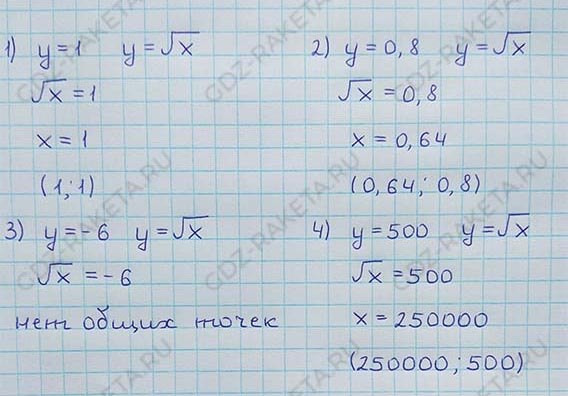 1) y=1 y=√x
√x = 1
x = 1
(1; 1)
2) y=0,8 y=√x
√x = 0,8
x = 0,64
(0,64; 0,8)
3) y=-6 y=√x
√x = -6
нет общих точек
4) y=500 y=√x
√x = 500
x = 250000
(250000; 500)
GDZ-RAKETA.RU